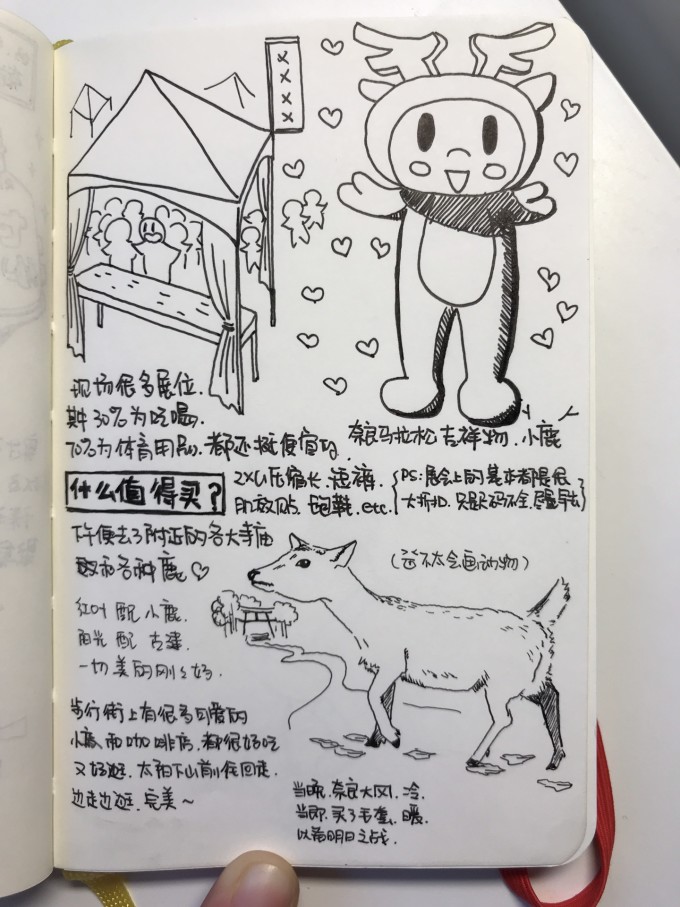 现场很多展位.
其中30%为吃喝.
70%为体育用品.都还挺便宜的
奈良马拉松吉祥物.小鹿
什么值得买?
2XU压缩长.短裤.
肌效贴.跑鞋.etc.
PS:展会上的基本都是很
大折扣.只是尺码不全.尽量早去
下午便去了附近的各大寺庙
散布各种鹿♡
(爸不太会画动物)
红叶 配 小鹿.
阳光 配 古建.
一切美的刚刚好.
步行街上有很多
小店和咖啡店.都很好吃
又好逛.太阳下山前往回走.
边走边逛.完美~
当晚.奈良大风.冷.
当即.买了毛毯.暖.
以备明日之战.